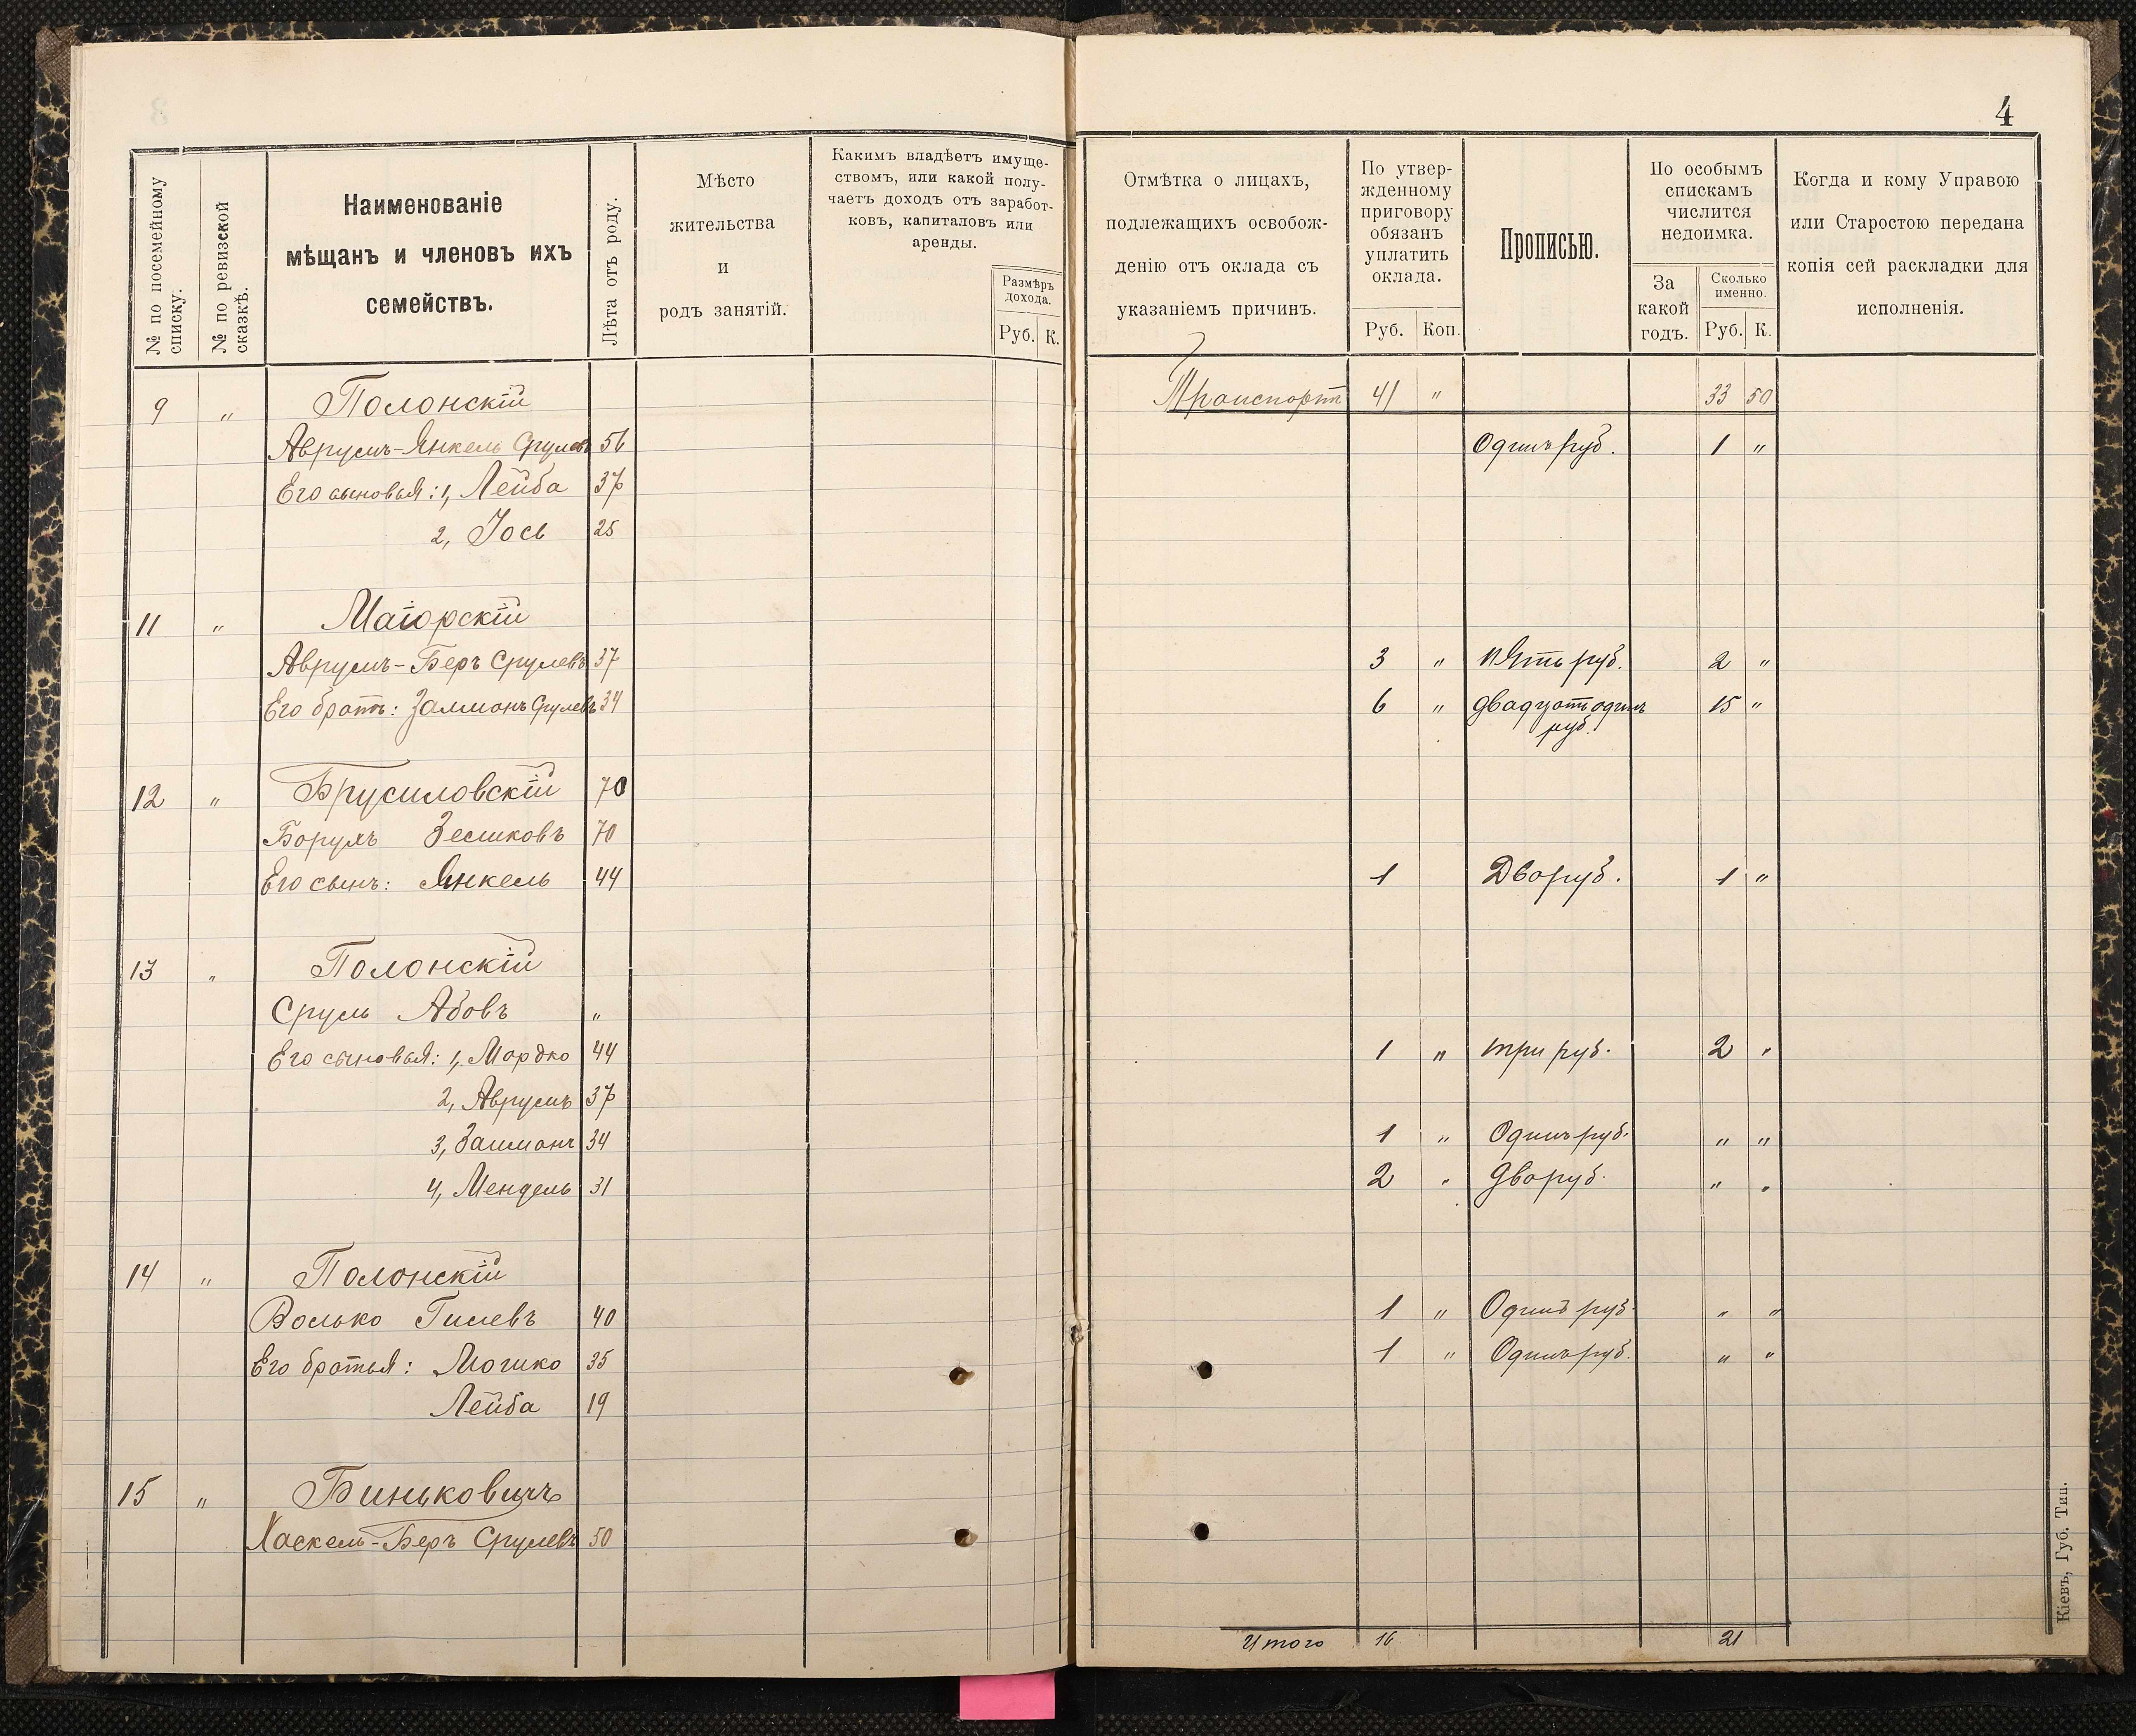 4
№ по посемейному списку.
№ по ревизской сказкѣ.
Наименованіе
мѣщанъ и членовъ ихъ
семействъ.
Лѣта отъ роду.
Мѣсто
жительства
и
родъ занятій.
Какимъ владѣетъ имуще-
ствомъ, или какой полу-
чаетъ доходъ отъ заработ-
ковъ, капиталовъ или
аренды.
Размѣръ
дохода.
Руб. К.
Отмѣтка о лицахъ,
подлежащихъ освобож-
денію отъ оклада съ
указаніемъ причинъ.
По утвер-
жденному
приговору
обязанъ
уплатить
оклада.
Руб. Коп.
Прописью.
По особымъ
спискамъ
числится
недоимка.
За
какой
годъ.
Сколько
именно.
Руб. К.
Когда и кому Управою
или Старостою передана
копія сей раскладки для
исполненія.
9 " Полонскій Транспортъ 41 " 33 50
Аврумъ-Янкель Срулевъ 56 Одинъ руб. 1 "
Его сыновья: 1, Лейба 37
2, Іось 25
11 " Маіорскій
Аврумъ-Беръ Срулевъ 37 3 " пять руб. 2 "
Его братъ: Залманъ Срулевъ 34 6 " двадцать одинъ 15 "
руб.
12 " Брусиловскій 70
Борухъ Зеликовъ 70
Его сынъ: Янкель 44 1 Два руб. 1 "
13 " Полонскій
Сруль Абовъ "
Его сыновья: 1, Мордко 44 1 " три руб. 2 "
2, Аврумъ 37
3, Залманъ 34 1 " Одинъ руб. " "
4, Мендель 31 2 " два руб. " "
14 " Полонскій
Волько Гилевъ 40 1 " Одинъ руб. " "
Его братья: Мошко 35 1 " Одинъ руб. " "
Лейба 19
15 " Биньковичъ
Хаскель-Беръ Срулевъ 50
Итого 16 21
Кіевъ, Губ. Тип.